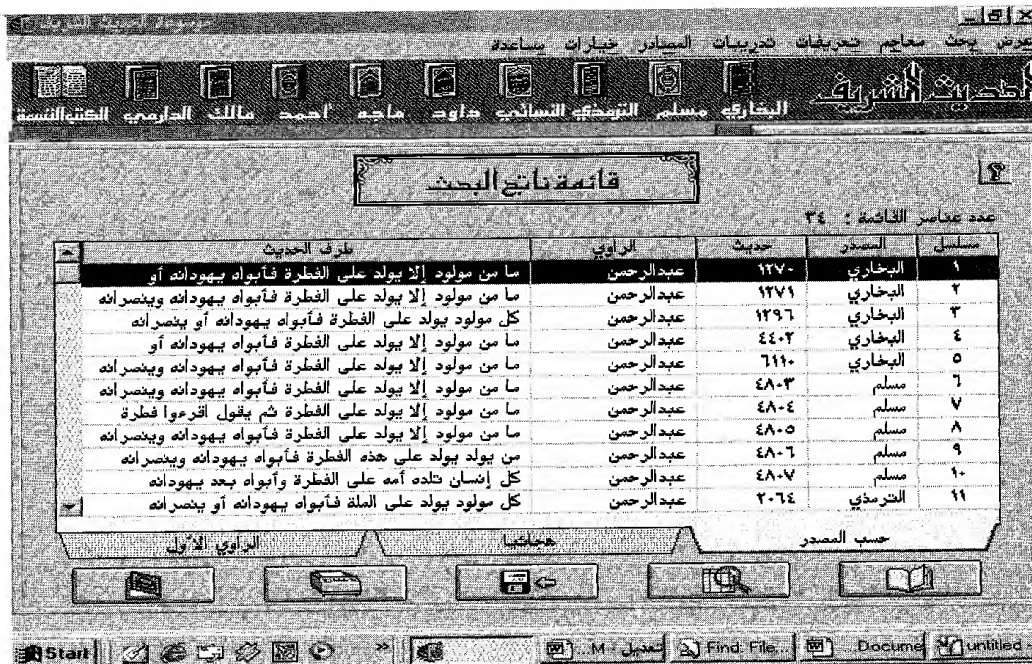 عرض بحث معاجم تعريفات تدريبات المصادر خيارات مساعدة
الحديث الشريف
البخاري مسلم الترمذي النسائي داود ماجه أحمد مالك الدارمي الكتب التسعة
قائمة ناتج البحث
عدد عناصر القائمة : ٣٤
مسلسل المصدر حديث الراوي طرف الحديث
١ البخاري ١٢٧٠ عبدالرحمن ما من مولود إلا يولد على الفطرة فأبواه يهودانه أو
٢ البخاري ١٢٧١ عبدالرحمن ما من مولود إلا يولد على الفطرة فأبواه يهودانه وينصرانه
٣ البخاري ١٢٩٦ عبدالرحمن كل مولود يولد على الفطرة فأبواه يهودانه أو ينصرانه
٤ البخاري ٤٤٠٢ عبدالرحمن ما من مولود إلا يولد على الفطرة فأبواه يهودانه أو
٥ البخاري ٦١١٠ عبدالرحمن ما من مولود إلا يولد على الفطرة فأبواه يهودانه وينصرانه
٦ مسلم ٤٨٠٣ عبدالرحمن ما من مولود إلا يولد على الفطرة فأبواه يهودانه وينصرانه
٧ مسلم ٤٨٠٤ عبدالرحمن ما من مولود إلا يولد على الفطرة ثم يقول اقرءوا فطرة
٨ مسلم ٤٨٠٥ عبدالرحمن ما من مولود إلا يولد على الفطرة فأبواه يهودانه وينصرانه
٩ مسلم ٤٨٠٦ عبدالرحمن من يولد يولد على هذه الفطرة فأبواه يهودانه وينصرانه
١٠ مسلم ٤٨٠٧ عبدالرحمن كل إنسان تلده أمه على الفطرة وأبواه بعد يهودانه
١١ الترمذي ٢٠٦٤ عبدالرحمن كل مولود يولد على الملة فأبواه يهودانه أو ينصرانه
حسب المصدر هجائيا الراوي الأول
Start M تعديل Find. File... Docume untitled